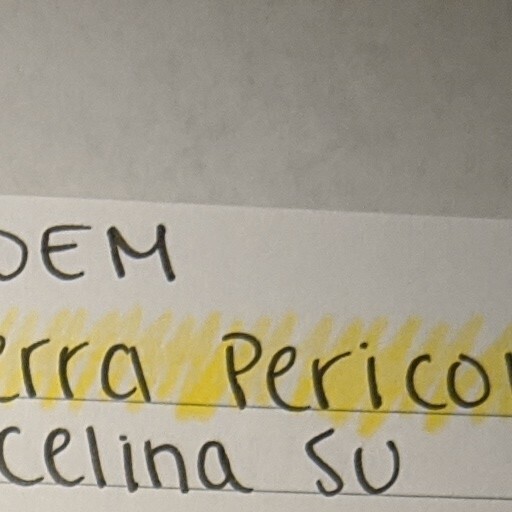 OEM
erra Perico
celina SU